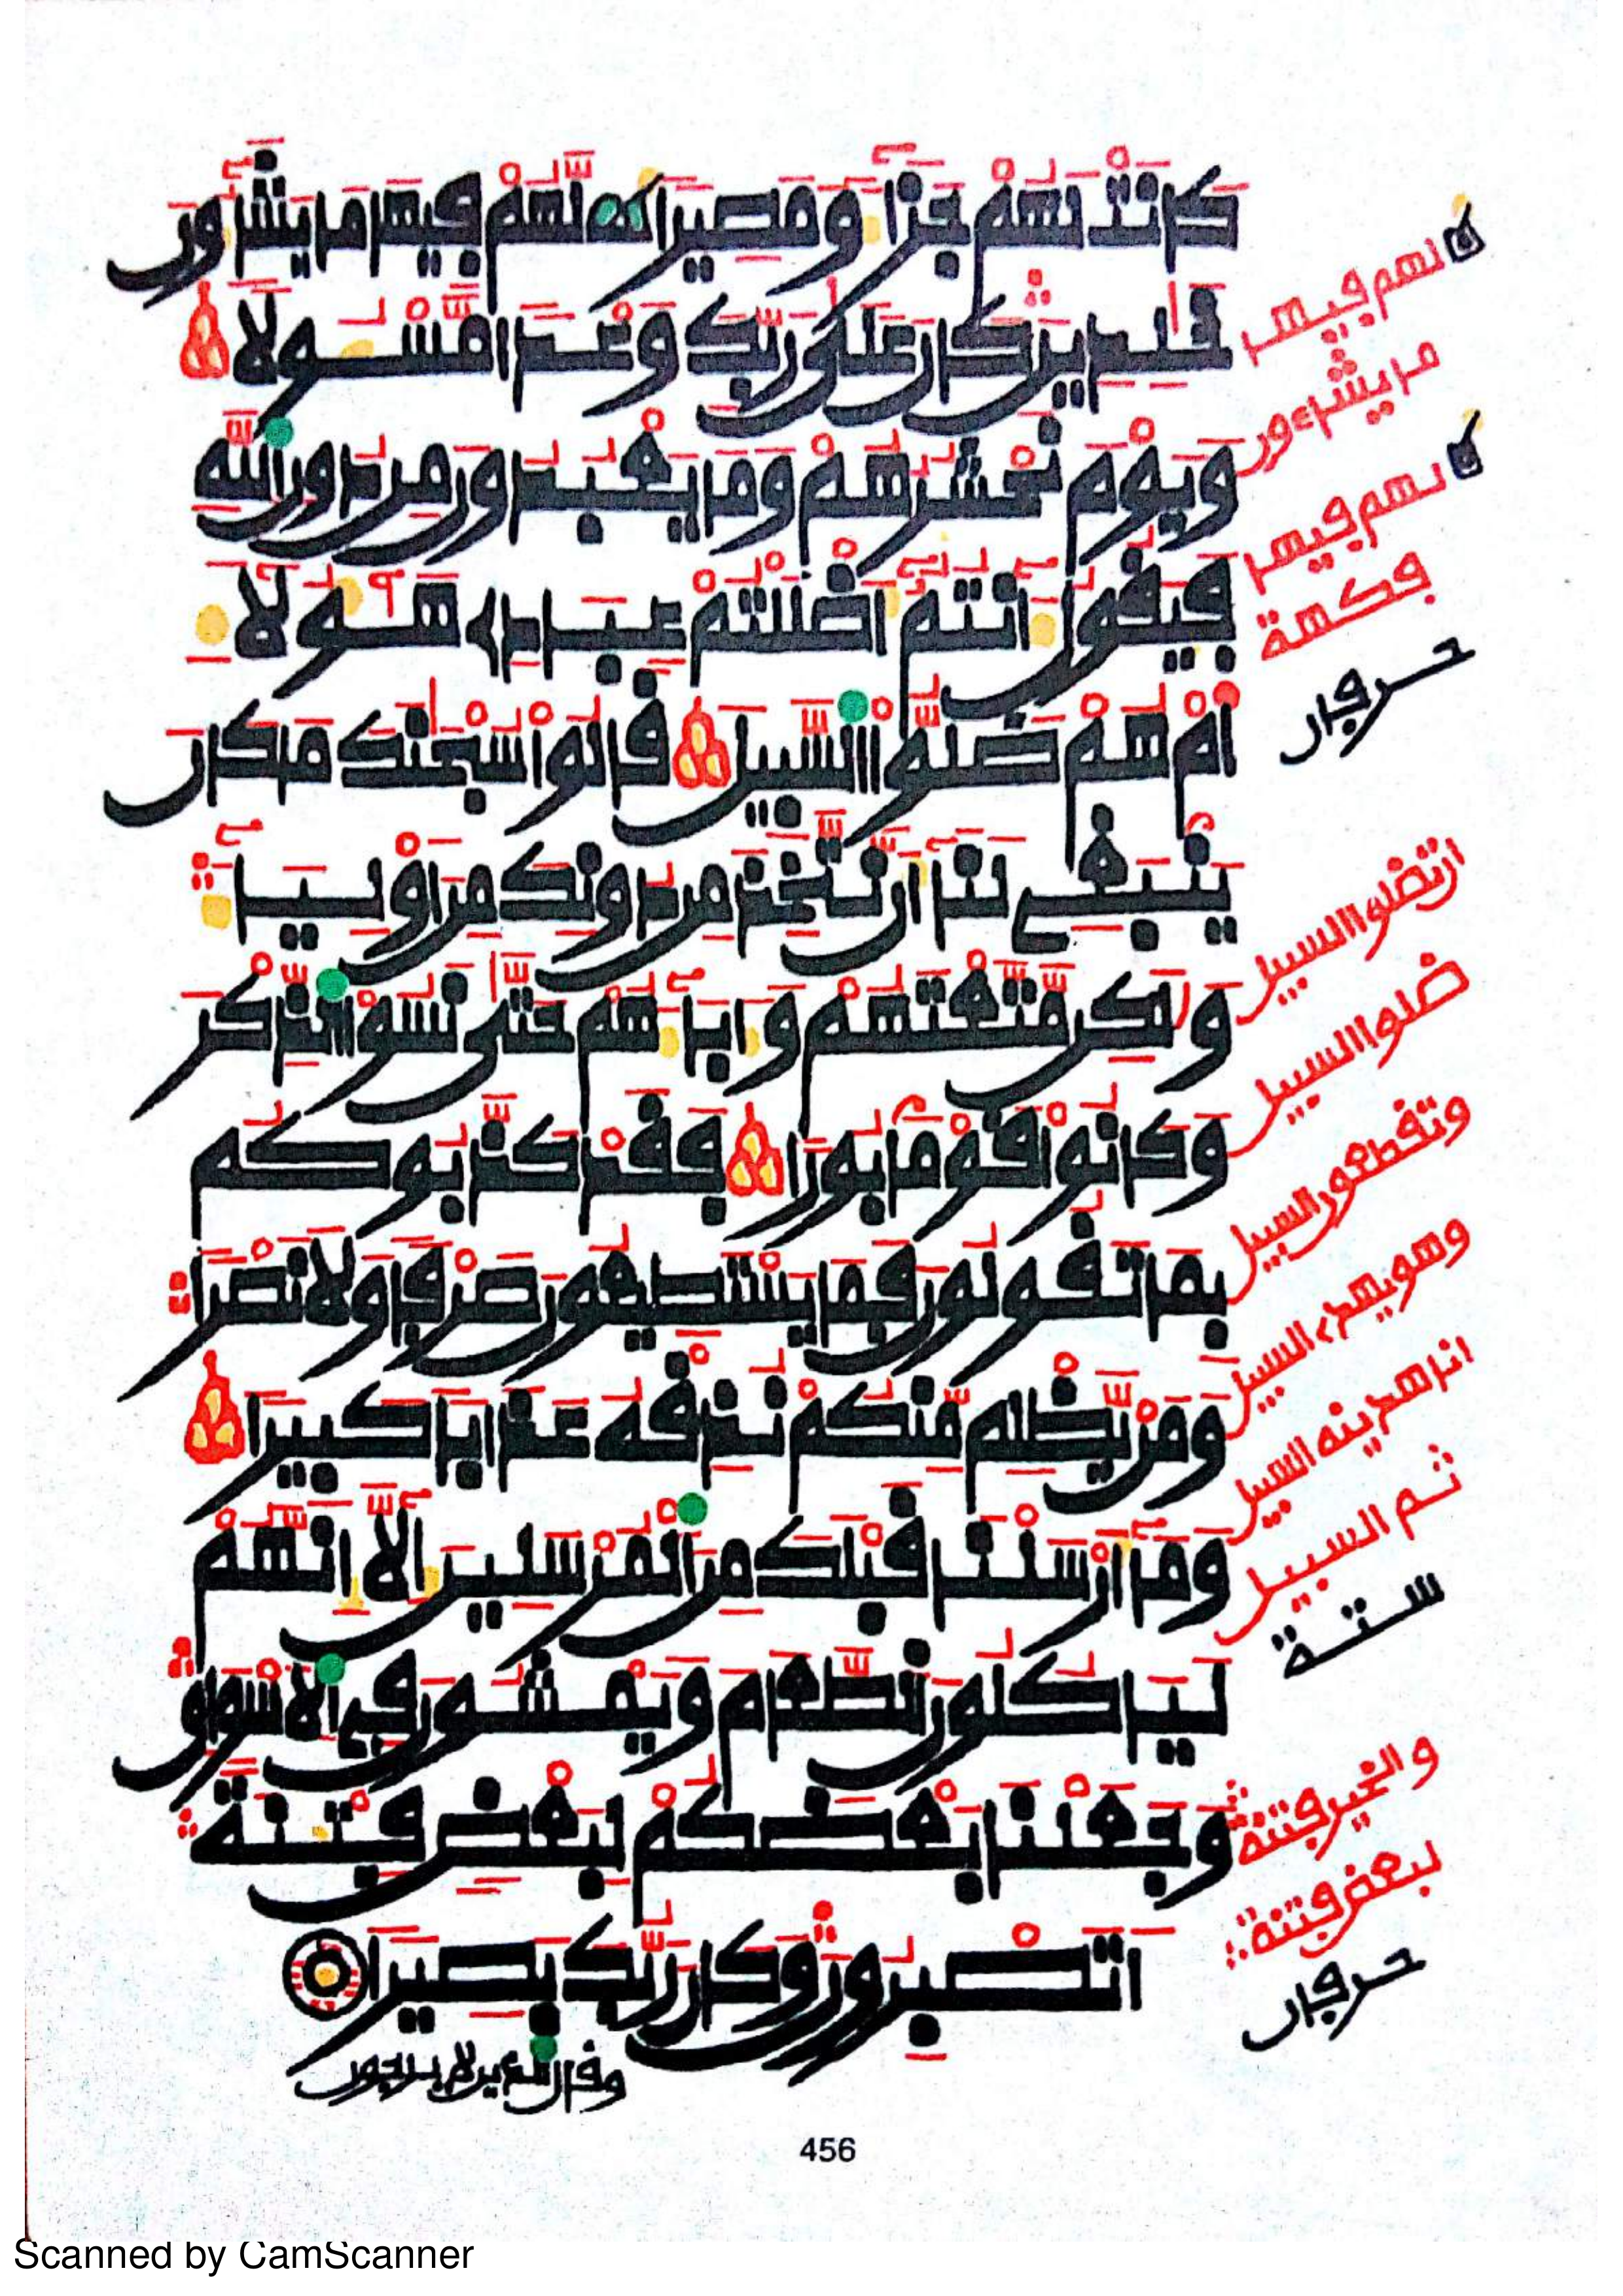 كَانَتْ لَهُمْ جَزَآءً وَمَصِيرًا لَّهُمْ فِيهَا مَا يَشَآءُونَ
خَٰلِدِينَ كَانَ عَلَىٰ رَبِّكَ وَعْدًا مَّسْـُٔولًا
وَيَوْمَ نَحْشُرُهُمْ وَمَا يَعْبُدُونَ مِن دُونِ اللَّهِ
فَيَقُولُ ءَآنتُمْ أَضْلَلْتُمْ عِبَادِى هَٰٓؤُلَآءِ
أَمْ هُمْ ضَلُّوا۟ السَّبِيلَ قَالُوا۟ سُبْحَٰنَكَ مَا كَانَ
يَنۢبَغِى لَنَآ أَن نَّتَّخِذَ مِن دُونِكَ مِنْ أَوْلِيَآءَ
وَلَٰكِن مَّتَّعْتَهُمْ وَءَابَآءَهُمْ حَتَّىٰ نَسُوا۟ الذِّكْرَ
وَكَانُوا۟ قَوْمًۢا بُورًا فَقَدْ كَذَّبُوكُم
بِمَا تَقُولُونَ فَمَا يَسْتَطِيعُونَ صَرْفًا وَلَا نَصْرًا
وَمَن يَظْلِم مِّنكُمْ نُذِقْهُ عَذَابًا كَبِيرًا
وَمَآ أَرْسَلْنَا قَبْلَكَ مِنَ الْمُرْسَلِينَ إِلَّآ إِنَّهُمْ
لَيَاكُلُونَ الطَّعَامَ وَيَمْشُونَ فِى الْأَسْوَاقِ
وَجَعَلْنَا بَعْضَكُمْ لِبَعْضٍ فِتْنَةً
أَتَصْبِرُونَ وَكَانَ رَبُّكَ بَصِيرًا
وقال الذين لا يرجون
لهم فيها
ما يشاءون
لهم فيها
فكهة
حرفان
ان تضلوا السبيل
ضلوا السبيل
وتقطعون السبيل
وهو يهدى السبيل
انا هدينه السبيل
ثم السبيل
ستة
والخير فتنة
لبعض فتنة
حرفان
456
Scanned by CamScanner